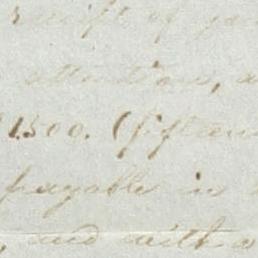 receipt of
attention, a
$1.500. (fifteen
payable in
, and with a